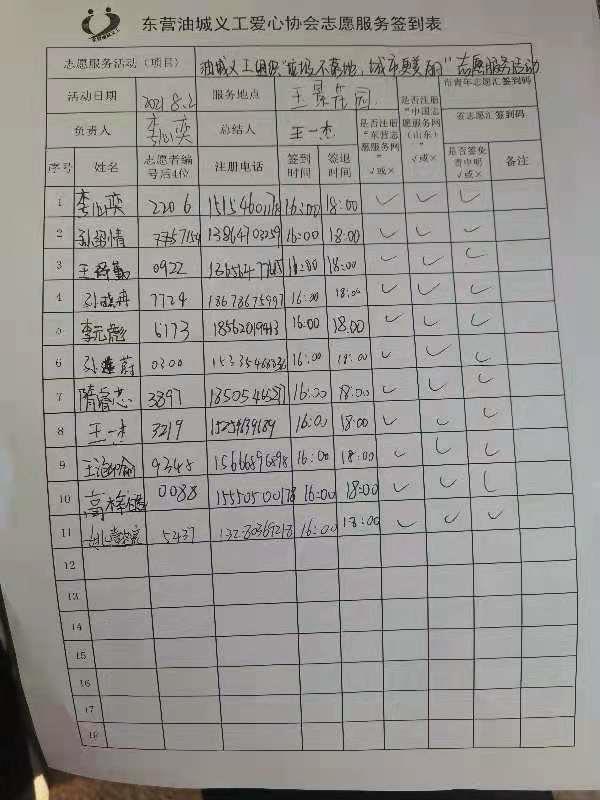 东营油城义工爱心协会志愿服务签到表
志愿服务活动（项目） 油城义工组织"垃圾不落地，城市更美丽"志愿服务活动
活动日期 2021.8.2 服务地点 王景花园 是否注册"东营志愿服务网" √或× 是否注册"中国志愿服务网（山东）" √或× 市青年志愿汇签到码
负责人 李沁奕 总结人 王一杰 签志愿汇签到码
序号 姓名 志愿者编号后4位 注册电话 签到时间 签退时间 是否签免责申明 √或× 备注
1 李沁奕 2206 16:00 18:00 ✓ ✓ ✓
2 孙绍情 7757154 13864703259 16:00 18:00 ✓ ✓ ✓
3 0922 18:00 ✓ ✓ ✓
4 7724 18678675997 16:00 18:00 ✓ ✓ ✓
5 李元彪 6173 18562019413 16:00 18:00 ✓ ✓ ✓
6 0300 16:00 18:00 ✓ ✓ ✓
7 隋睿志 3897 18505465277 16:00 18:00 ✓ ✓ ✓
8 王一杰 3219 15254639189 16:00 18:00 ✓ ✓ ✓
9 9348 15666896898 16:00 18:00 ✓ ✓ ✓
10 0088 15550500178 16:00 18:00 ✓ ✓ ✓
11 5437 13280369218 16:00 18:00 ✓ ✓ ✓
12
13
14
15
16
17
18